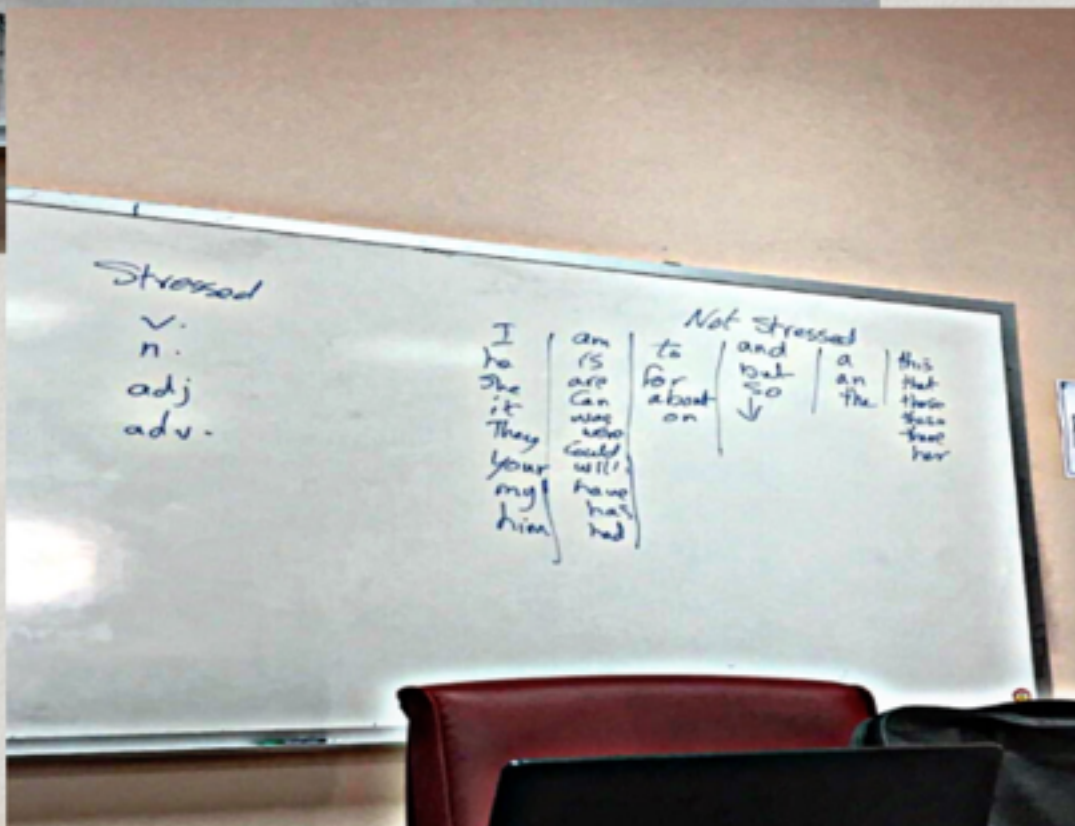 Stressed
v.
n.
adj
adv.
Not Stressed
I
he
she
it
They
your
my
him
am
is
are
Can
was
were
Could
will
have
has
had
to
for
about
on
and
but
so
↓
a
an
the
this
that
those
her